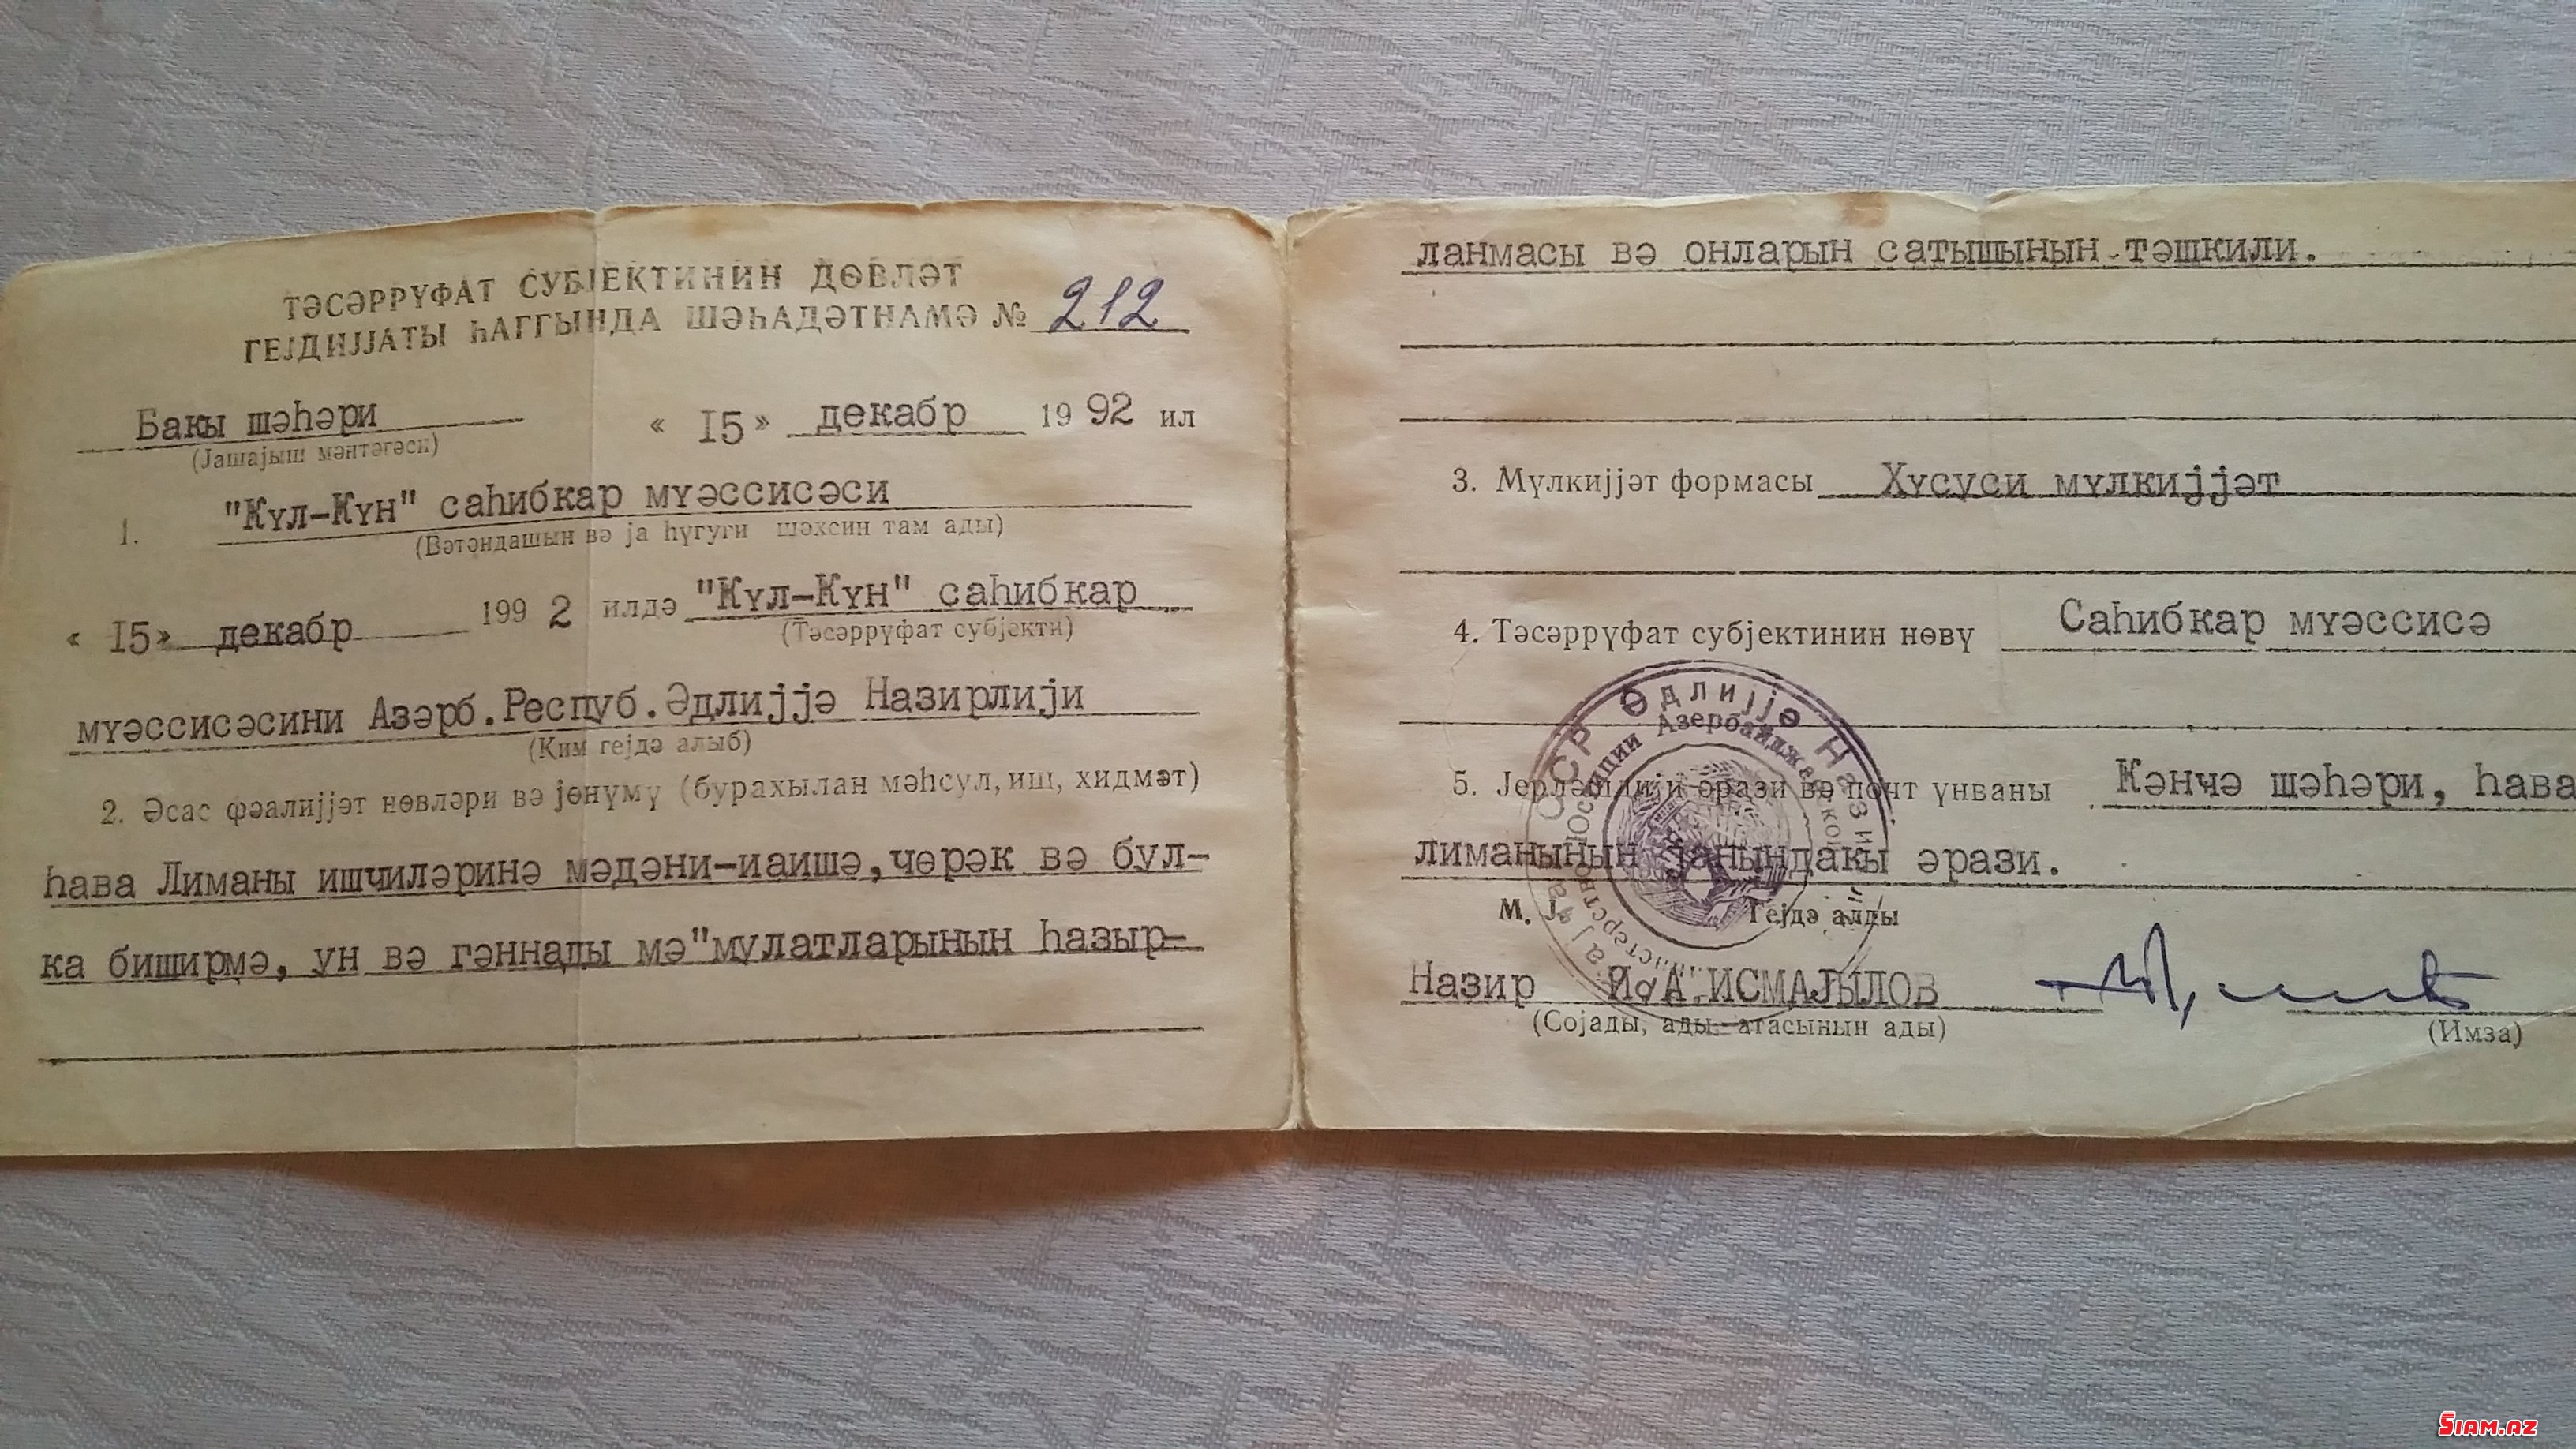 ТӘСӘРРҮФАТ СУБЈЕКТИНИН ДӨВЛӘТ
ГЕЈДИЈЈАТЫ ҺАГГЫНДА ШӘҺАДӘТНАМӘ № 212
Бакы шәһәри « I5» декабр 19 92 ил
(Јашајыш мәнтәгәси)
1. "Күл-Күн" саһибкар мүәссисәси
(Вәтәндашын вә ја һүгуги шәхсин там ады)
« I5» декабр 199 2 илдә "Күл-Күн" саһибкар
(Тәсәррүфат субјекти)
мүәссисәсини Азәрб.Респуб.Әдлијјә Назирлији
(Ким гејдә алыб)
2. Әсас фәалијјәт нөвләри вә јөнүмү (бурахылан мәһсул, иш, хидмәт)
һава Лиманы ишчиләринә мәдәни-иаишә,чөрәк вә бул-
ка биширмә, ун вә гәннады мә"мулатларынын һазыр-
ланмасы вә онларын сатышынын тәшкили.
3. Мүлкијјәт формасы Хүсуси мүлкијјәт
4. Тәсәррүфат субјектинин нөвү Саһибкар мүәссисә
5. Јерләшдији әрази вә почт үнваны Кәнчә шәһәри, һава
лиманынын јанындакы әрази.
М. Ј. Гејдә алды
Назир И.А.ИСМАЈЫЛОВ
(Сојады, ады, атасынын ады) (Имза)
ССР Әдлијјә Нази
Азербайджанской
Siam.az